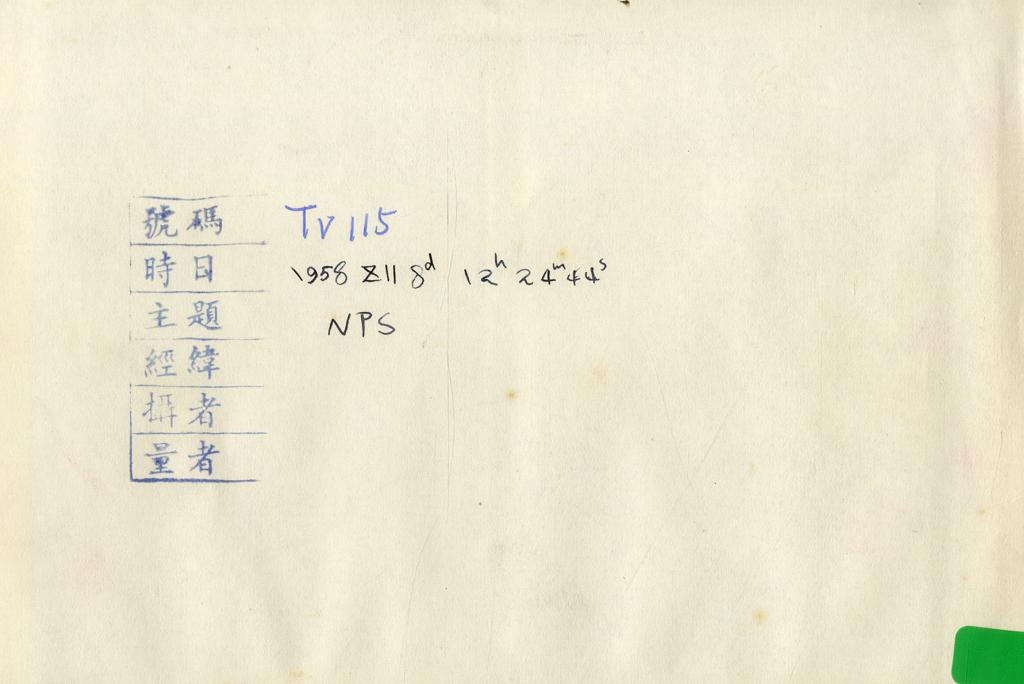 號碼 TV 115
時日 1958 XII 8ᵈ 12ʰ 24ᵐ44ˢ
主題 NPS
經緯
攝者
量者